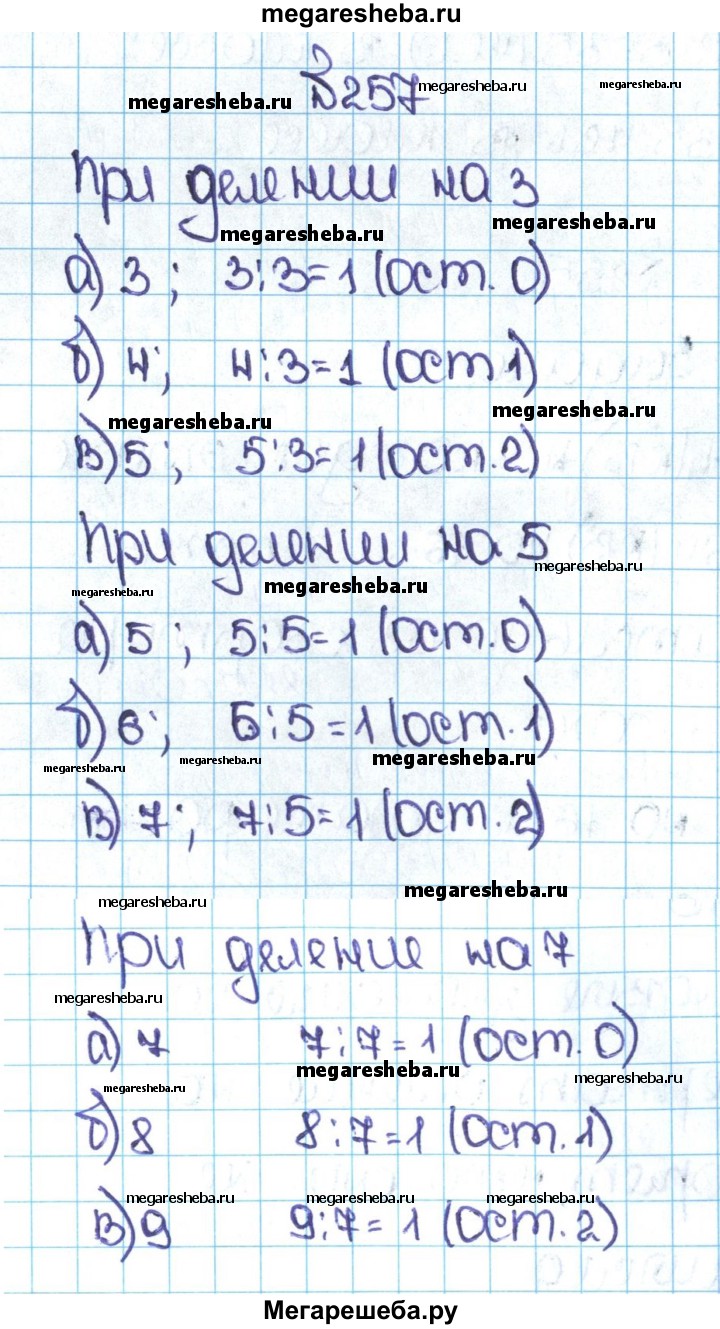 megaresheba.ru
№257
megaresheba.ru
megaresheba.ru
megaresheba.ru
При делении на 3
megaresheba.ru
megaresheba.ru
а) 3; 3:3=1 (ост. 0)
б) 4; 4:3=1 (ост 1)
megaresheba.ru
megaresheba.ru
в) 5; 5:3=1 (ост. 2)
При делении на 5
megaresheba.ru
megaresheba.ru
megaresheba.ru
а) 5; 5:5=1 (ост. 0)
б) 6; 6:5=1 (ост. 1)
megaresheba.ru
megaresheba.ru
megaresheba.ru
в) 7; 7:5=1 (ост. 2)
megaresheba.ru
megaresheba.ru
При деление на 7
megaresheba.ru
а) 7 7:7=1 (ост. 0)
megaresheba.ru
megaresheba.ru
megaresheba.ru
б) 8 8:7=1 (ост. 1)
megaresheba.ru
megaresheba.ru
megaresheba.ru
в) 9 9:7=1 (ост. 2)
Мегарешеба.ру